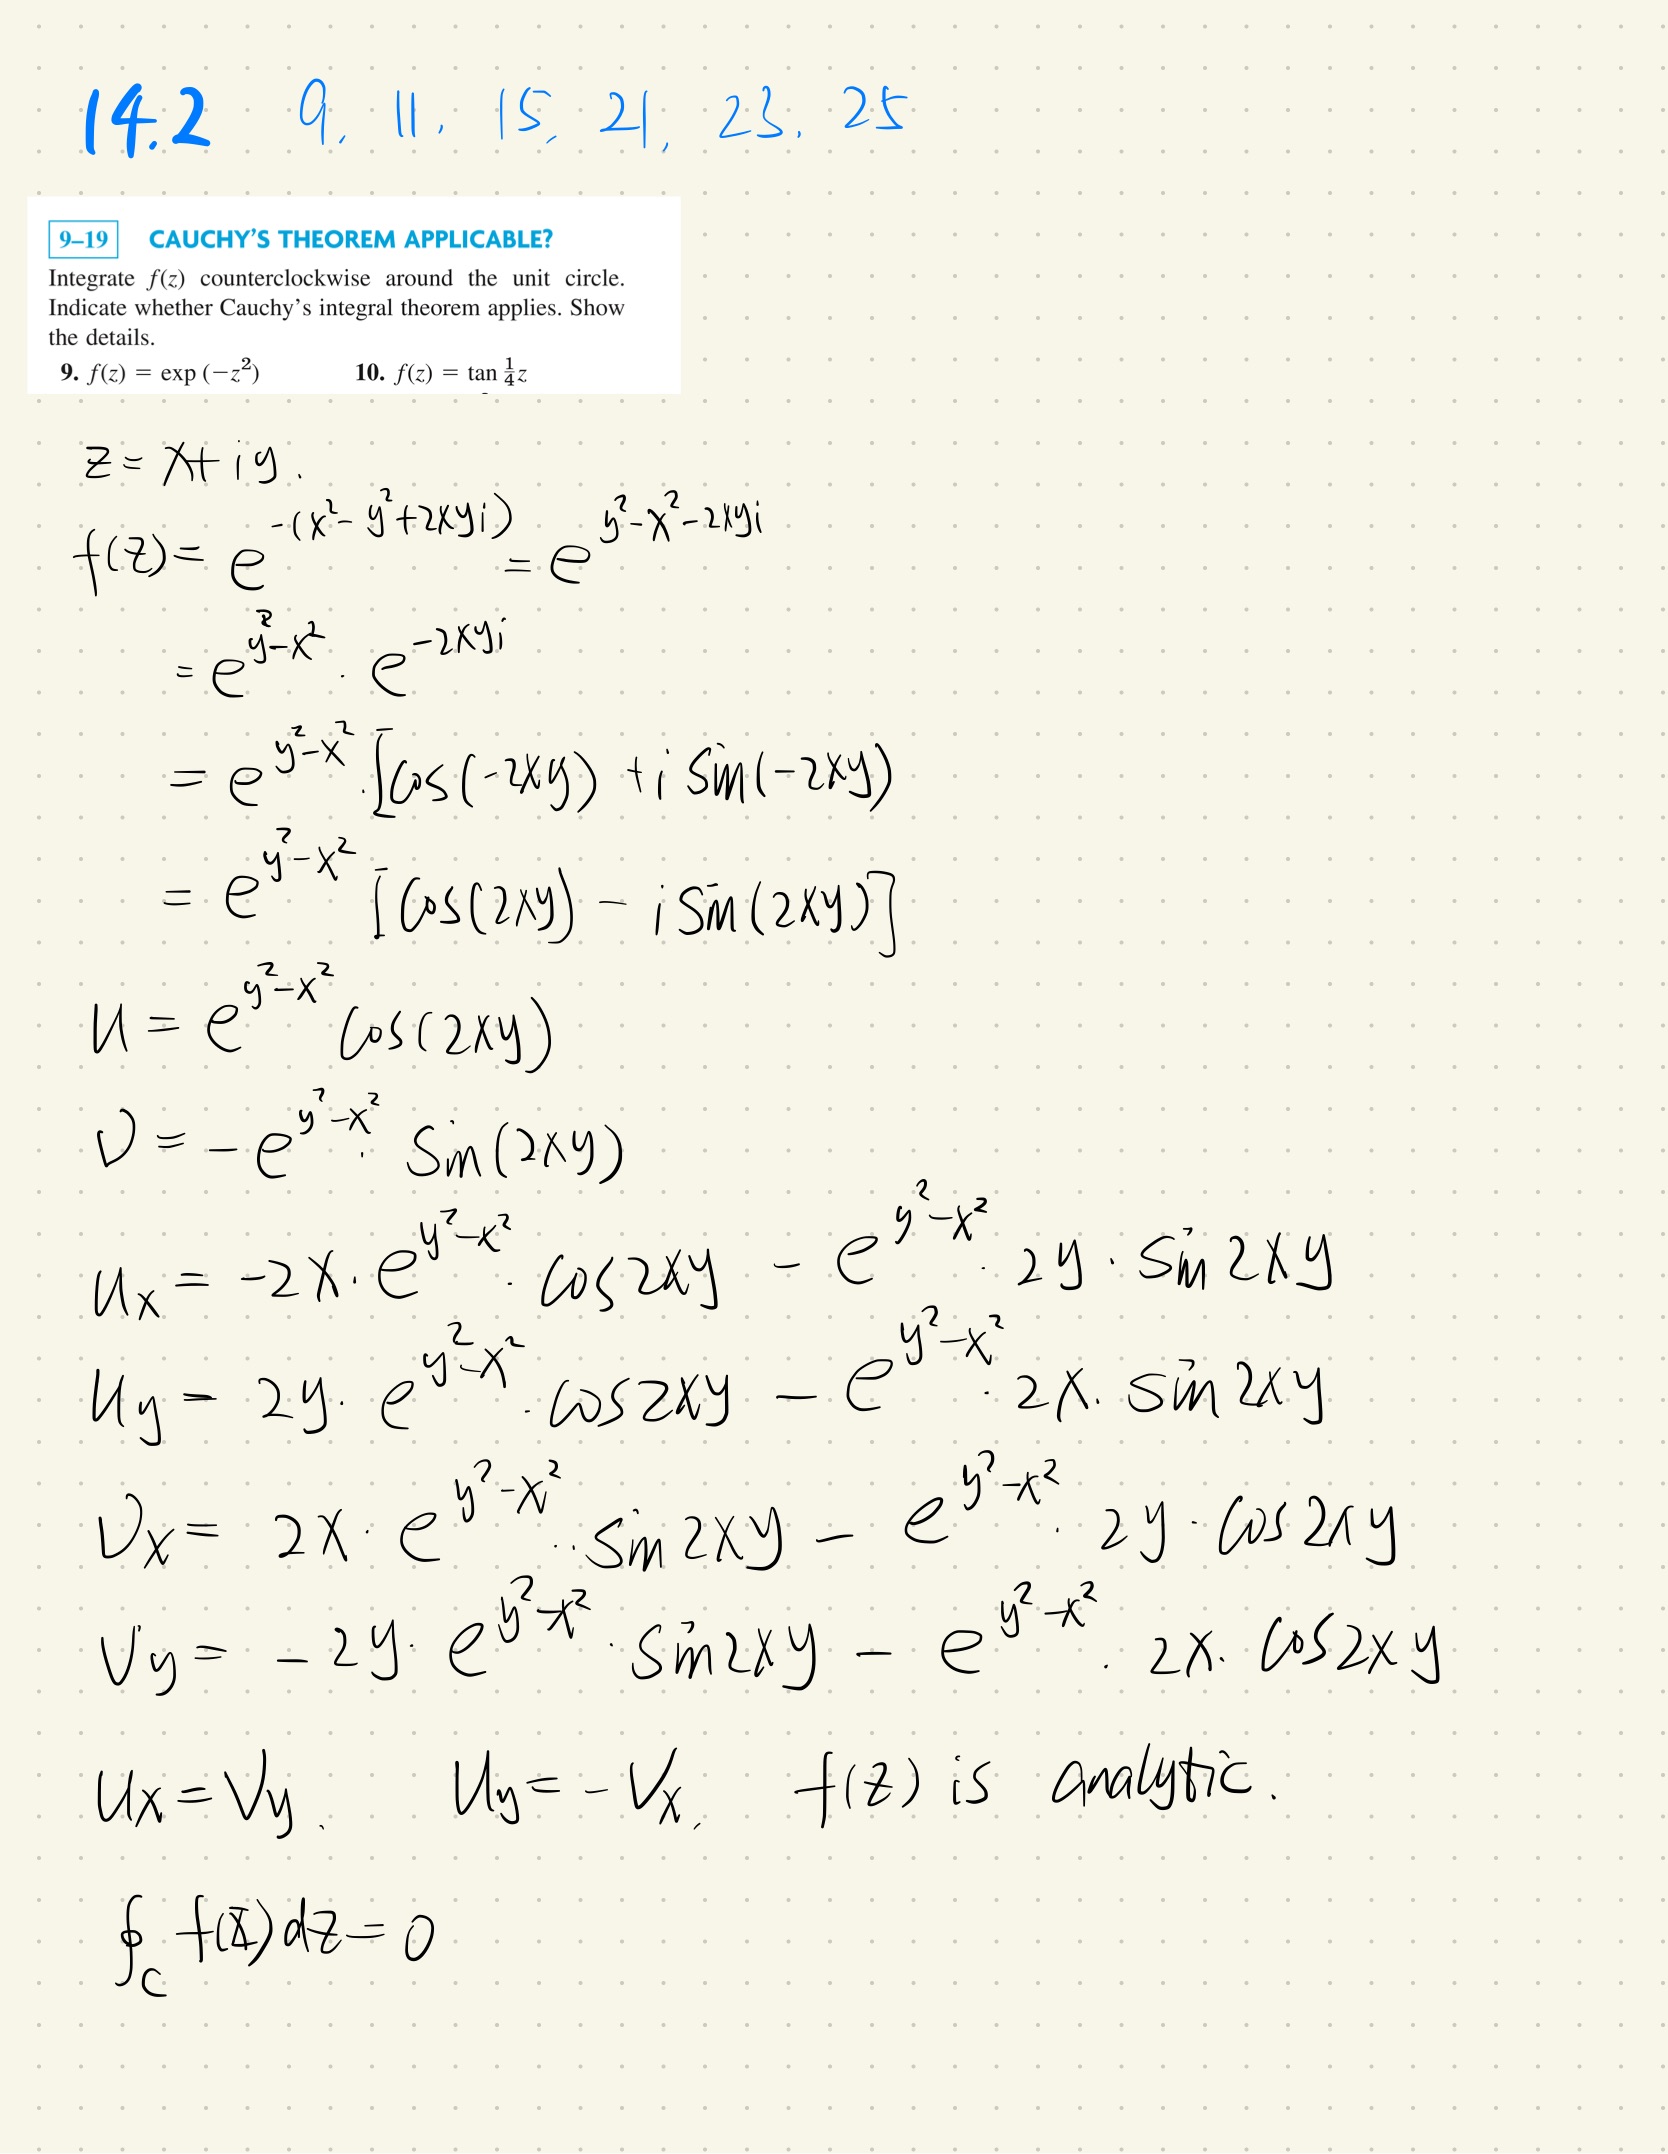 14.2 9, 11, 15, 21, 23, 25
9–19 CAUCHY'S THEOREM APPLICABLE?
Integrate f(z) counterclockwise around the unit circle.
Indicate whether Cauchy's integral theorem applies. Show
the details.
9. f(z) = exp (−z²) 10. f(z) = tan ¼z
z = x+iy.
f(z) = e^{-(x²-y²+2xyi)} = e^{y²-x²-2xyi}
= e^{y²-x²} · e^{-2xyi}
= e^{y²-x²} · [cos(-2xy) + i sin(-2xy)
= e^{y²-x²} [cos(2xy) - i sin(2xy)]
u = e^{y²-x²} cos(2xy)
v = -e^{y²-x²} · sin(2xy)
u_x = -2x · e^{y²-x²} · cos2xy - e^{y²-x²} · 2y · sin2xy
u_y = 2y · e^{y²-x²} · cos2xy - e^{y²-x²} · 2x · sin2xy
v_x = 2x · e^{y²-x²} · sin2xy - e^{y²-x²} · 2y · cos2xy
v_y = -2y · e^{y²-x²} · sin2xy - e^{y²-x²} · 2x · cos2xy
u_x = v_y, u_y = -v_x, f(z) is analytic.
∮_C f(z)dz = 0